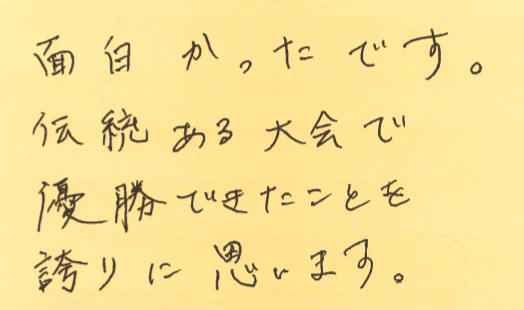 面白かったです。
伝統ある大会で
優勝できたことを
誇りに思います。